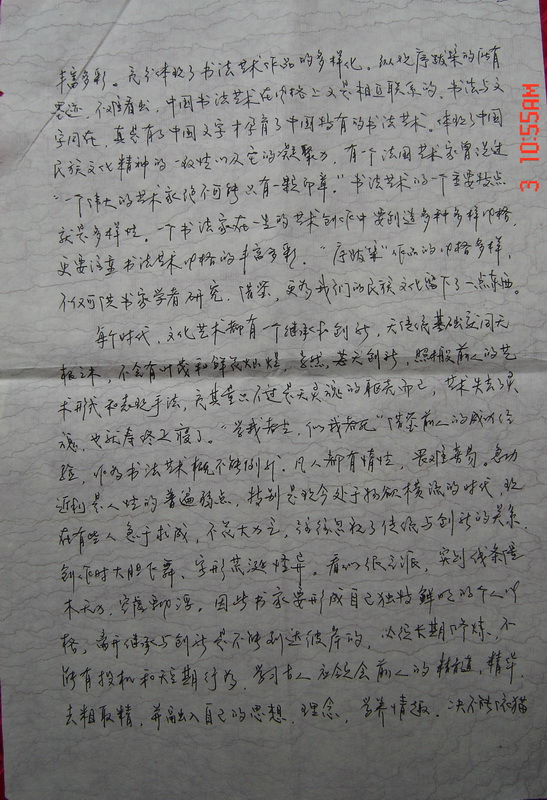 丰富多彩。充分体现了书法艺术作品的多样化。纵观序跋集的所有
墨迹，不难看出，中国书法艺术在风格上又是相互联系的。书法与文
字同在，真是有了中国文字才孕育了中国特有的书法艺术。体现了中国
民族文化精神的一致性以及它的凝聚力，有一个法国艺术家曾说过
“一个伟大的艺术家绝不可能只有一颗印章。”书法艺术的一个主要特点
就是多样性。一个书法家在一生的艺术创作中要创造多种多样风格
更要注意书法艺术风格的丰富多彩。“序跋集”作品的风格多样，
不仅可供书家学者研究，借鉴，更为我们的民族文化留下了一点东西。
每个时代，文化艺术都有一个继承和创新，无传统基础应同无
根之木，不会有叶茂和鲜花灿烂，当然，若无创新，照搬前人的艺
术形式和表现手法，充其量只不过是无灵魂的躯壳而已，艺术失去了灵
魂，也就寿终正寝了。“学我者生，似我者死”借鉴前人的成功经
验，作为书法艺术概不能例外。凡人都有惰性，畏难喜易。急功
近利是人性的普遍弱点，特别是现今处于物欲横流的时代，现
在有些人急于求成，不花大力气，往往忽视了传统与创新的关系，
创作时大胆飞舞、字形荒诞怪异。看似很气派，实则线条是
木无力，字虚而浮。因此书家要形成自己独特鲜明的个人风
格，离开继承与创新是不能到达彼岸的，必经长期修炼，不
能有投机和短期行为，学习古人应领会前人的精神，精华，
去粗取精，并融入自己的思想、理念，学养情趣。决不能依猫
3 10:55AM